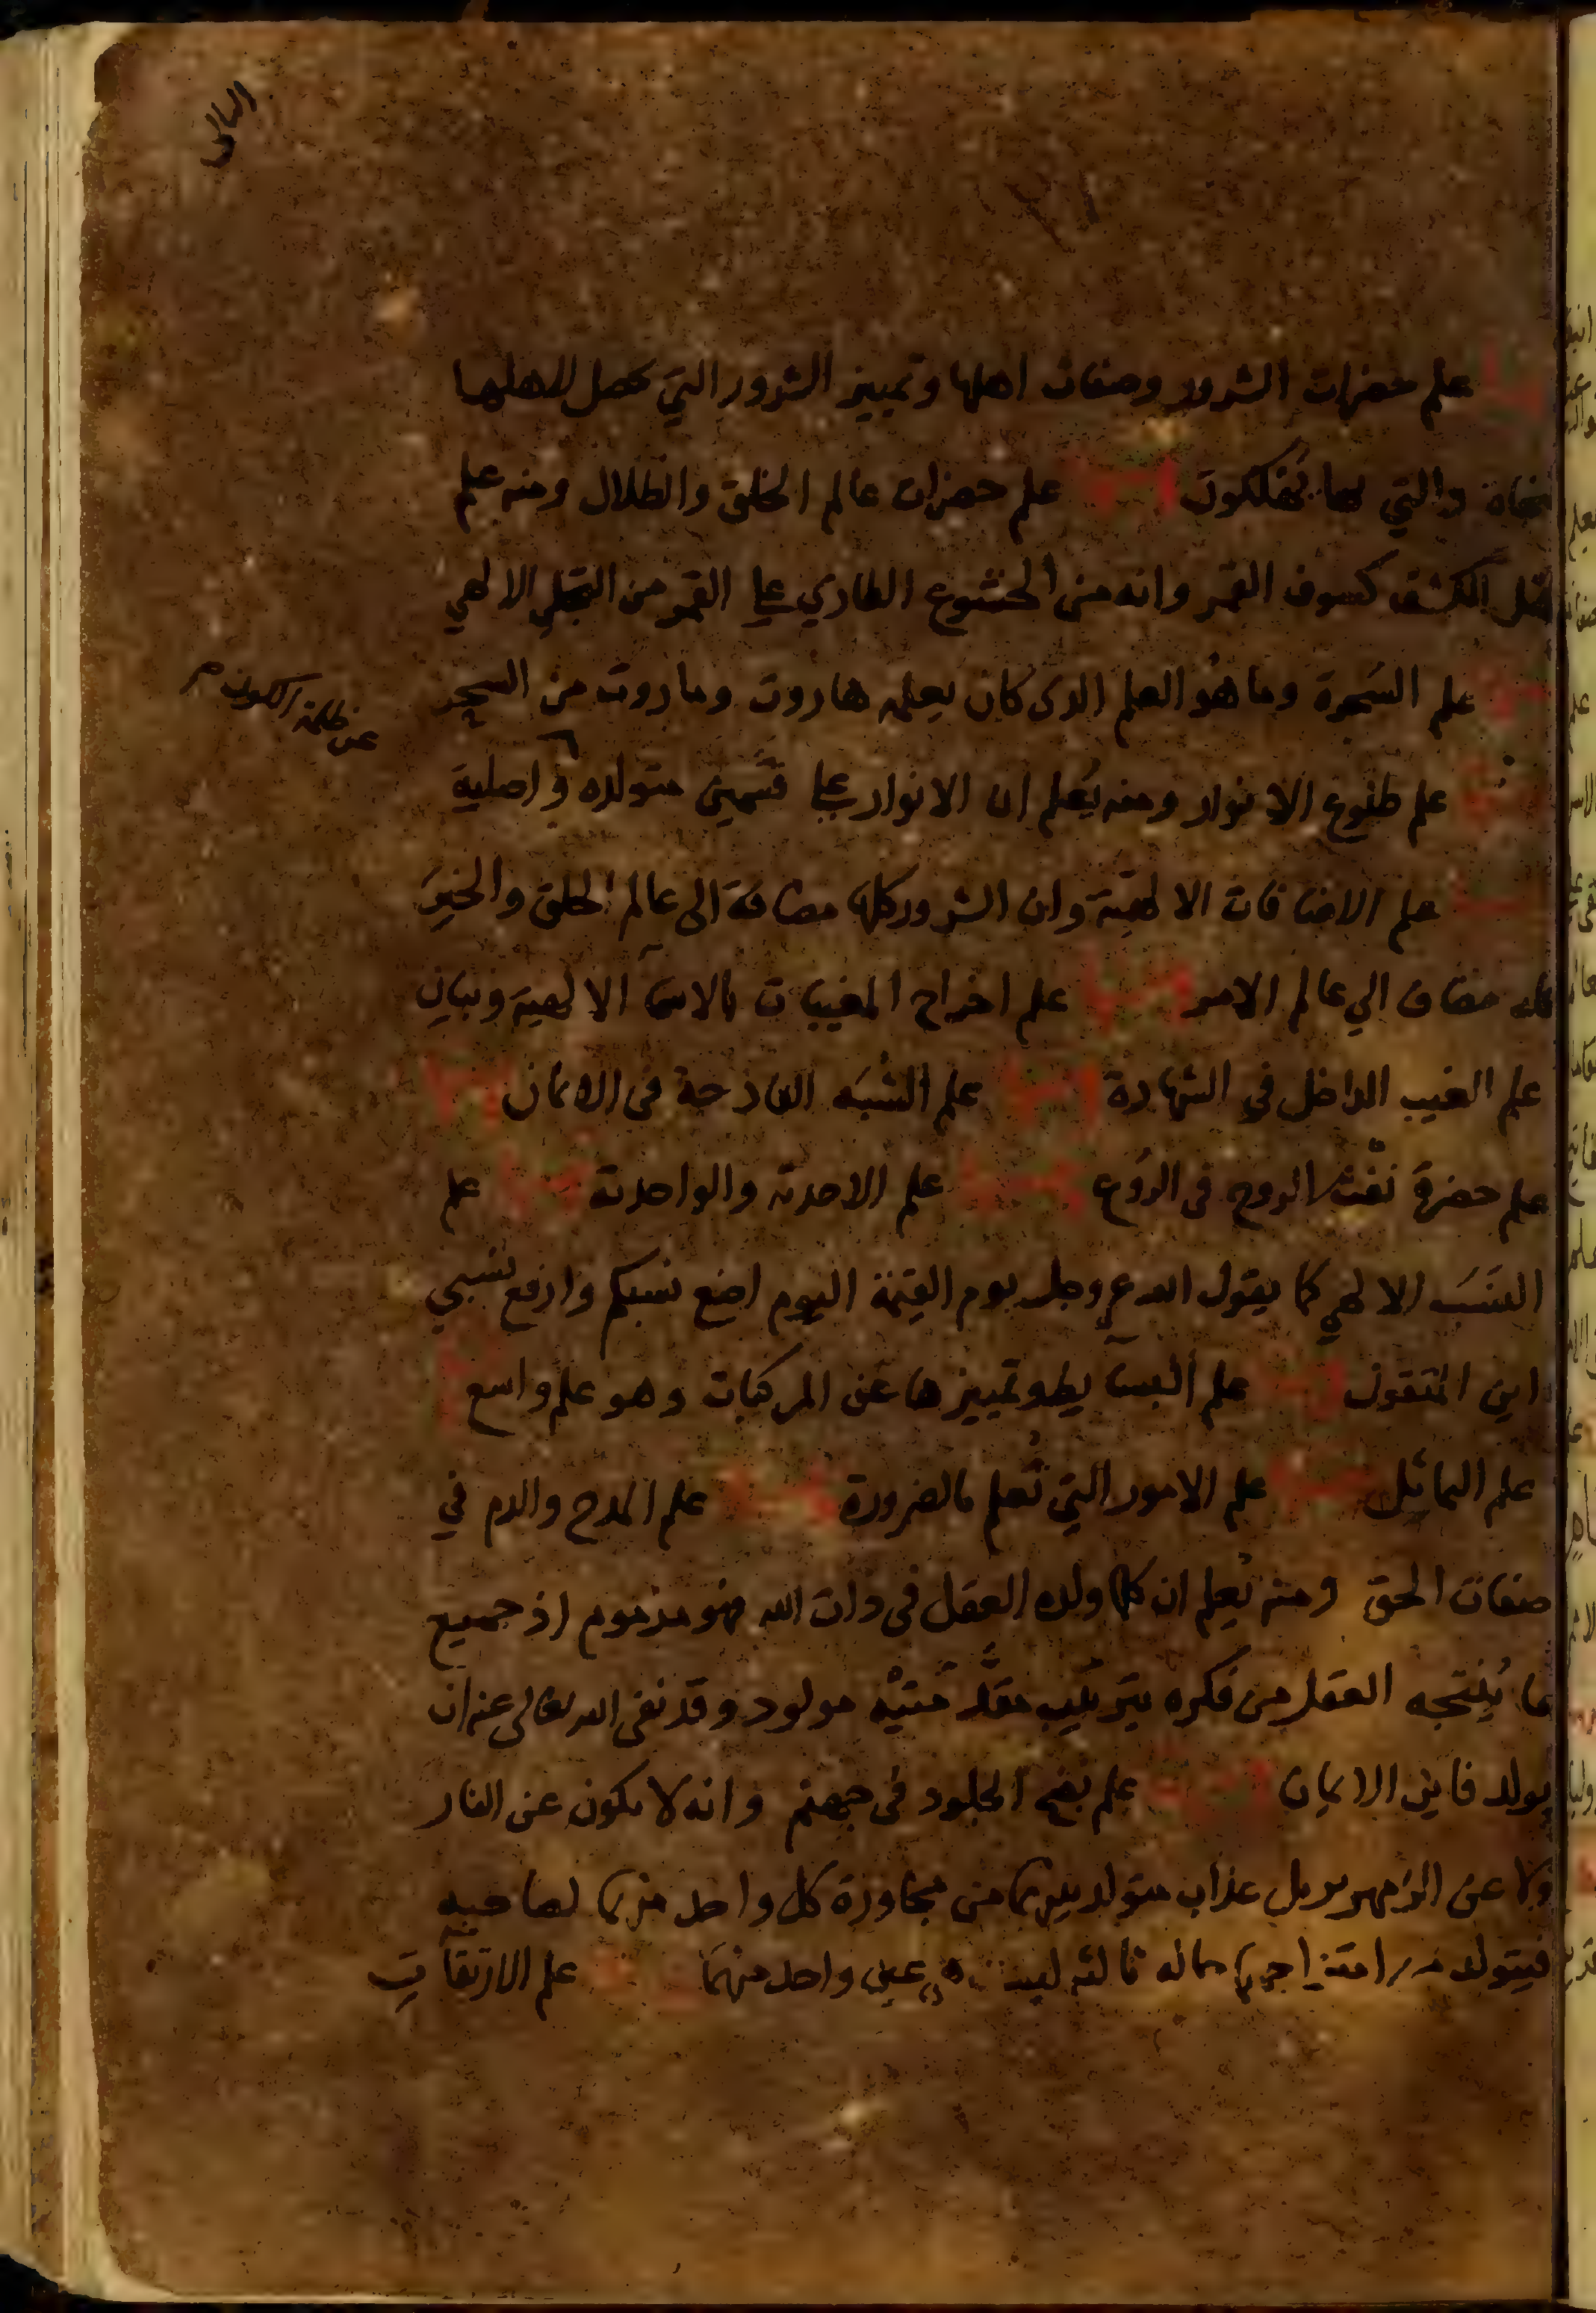 الثاني
علم حضرات الشرور وصفات اهلها وتمييز الشرور التي تحصل لاهلها
والتي بها يهلكون ومنها علم حضرات عالم الخلق والظلال ومنه علم
الكشف كسوف القمر وانه من الخشوع الطاري على القمر من التجلي الالهي
علم السحرة وما هو العلم الذي كان يعلمه هاروت وماروت من السحر
عن ظلمة الكون
علم طلوع الانوار ومنه يُعلم ان الانوار على قسمين متولده واصلية
علم الاضافات الالهية وان الشرور كلها مضافة الى عالم الخلق والخير
كله مضاف الي عالم الامر ومنها علم اخراج المغيبات بالاسماء الالهية وبيان
علم الغيب الداخل في الشهادة ومنها علم الشُبَه القادحة في الايمان ومنها
علم حضرة نَفْث الروح في الرُوع ومنها علم الاحدية والواحدية ومنها علم
النسَب الالهي كما يقول الله عز وجل يوم القيمة اليوم اضع نسبكم وارفع نسبي
اين المتقون ومنها علم البسايط وتمييزها عن المركبات وهو علم واسع
علم التماثل ومنها علم الامور التي تُعلم بالضرورة ومنها علم المدح والذم في
صفات الحق ومنه يُعلم ان كلما ولده العقل في ذات الله فهو مذموم اذ جميع
ما يُنتجه العقل من فكره بتركيب مقدّمتيْه مولود وقد نفى الله تعالى عنه ان
يولد فاين الايمان ومنها علم نضج الجلود في جهنم وانه لا يكون عن النار
ولا عن الزمهرير بل عذاب متولد بينهما من مجاورة كل واحد منهما لصاحبه
فيتولد من امتزاجهما حاله ثالثه ليست هي عين واحد منهما ومنها علم الارتقاآت